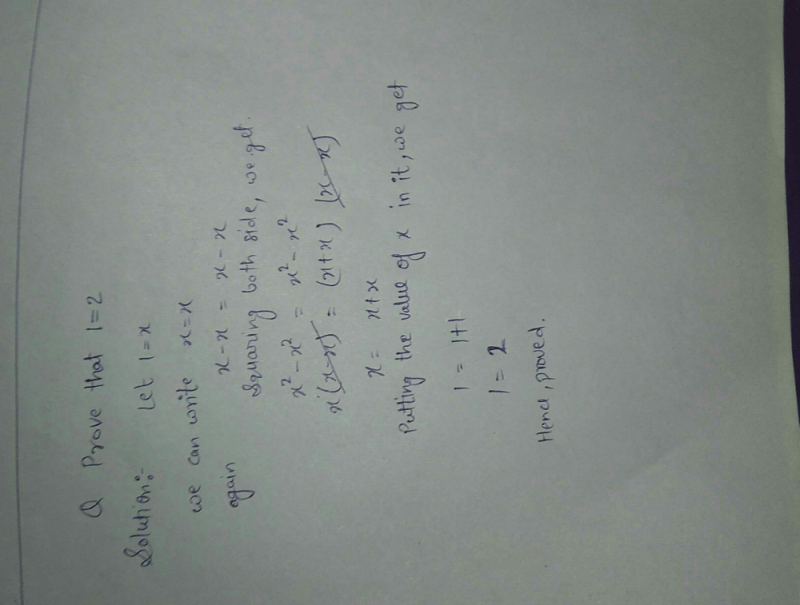 Q Prove that 1=2
Solution:- Let 1=x
we can write x=x
again x-x = x-x
Squaring both side, we get.
x²-x² = x²-x²
x(x-x) = (x+x) (x-x)
x = x+x
Putting the value of x in it, we get
1 = 1+1
1 = 2
Hence, proved.